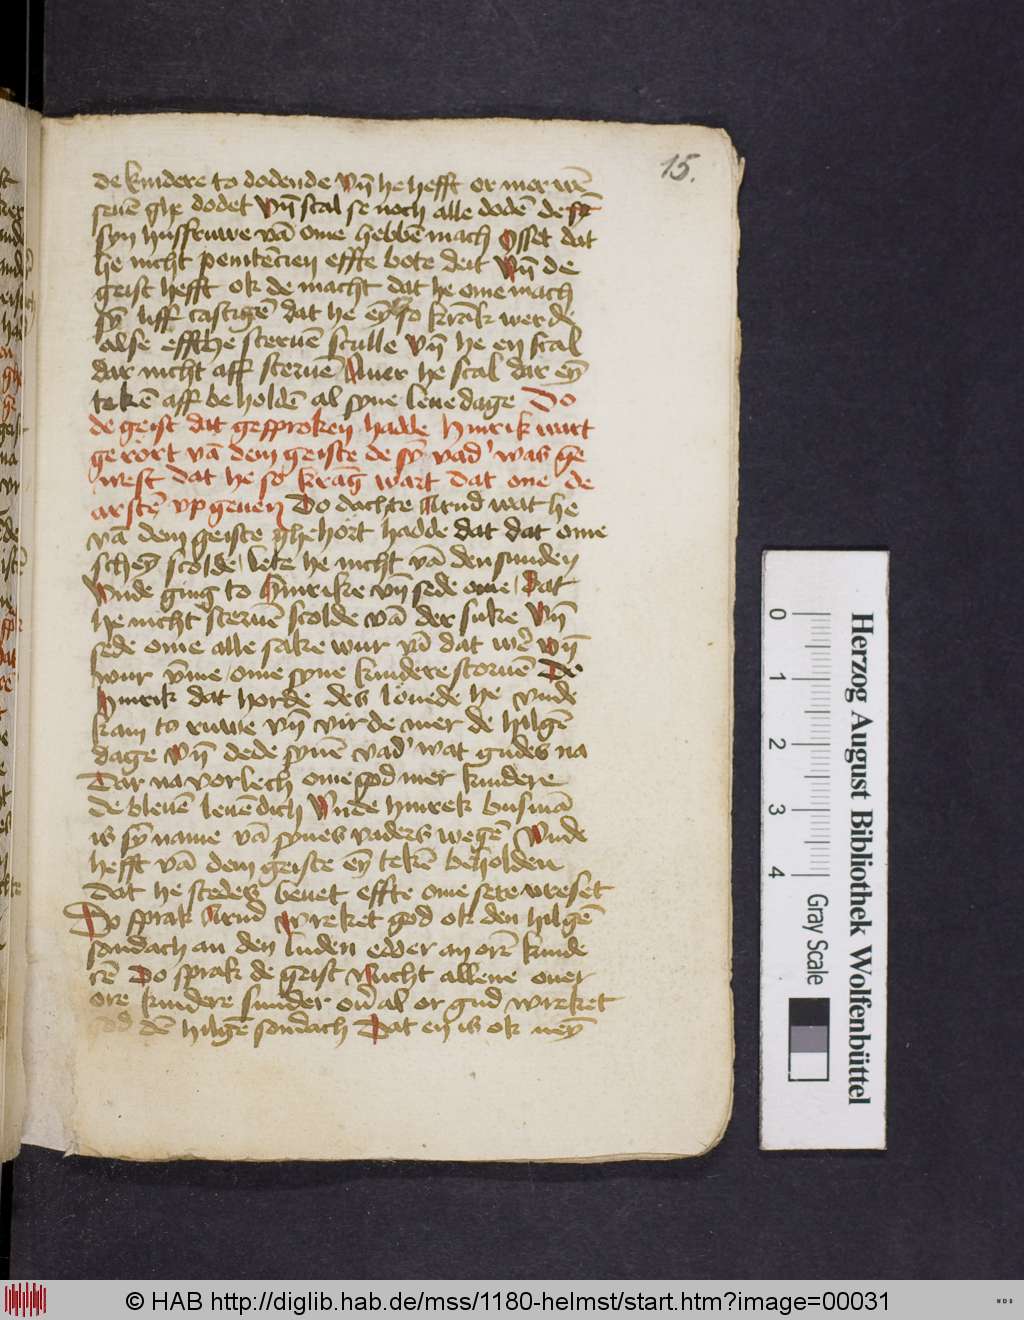 15.
de kindere to dodende vn̄ he hefft or mer wē
seuē ghe dodet vn̄ scal se noch alle dodē de
syn husfruwe vā ome hebbē mach Isset dat
he nicht penitēcien effte bote deit vn̄ de
geist hefft ok de macht dat he ome mach
sȳ liff castigē dat he eȳ so krāk werde
alse effthe steruē sculle vn̄ he en scal
dar nicht aff steruē Auer he scal dar eȳ
tekē aff beholdē al syne leue dage Do
de geist dat gesproken hadde hinrik wart
gerört vā dem geiste de sȳ vad' was ge
west dat he so krāg wart dat one de
arstē vp geuen Do dachte Arnd wat he
vā dem geiste ghehört hadde dat dat ome
scheȳ scolde bete he nicht vā den sunden
Vnde ging to Hinrike vn̄ sede ome Dat
he nicht steruē scolde vā der suke vn̄
sede ome alle sake wur vā dat wer vn̄
wur vme ome syne kindere storuē De
Hinrik dat horde des louede he vnde
kam to ruwe vn̄ vir de mer de hilgē
dage vn̄ dede synē vad' wat gudes na
Dar na vorlech ome god mer kindere
de bleuē leuēdich Vnde hinrek busmā
is sȳ name vā synes vaders wegē Vnde
hefft vā dem geiste eȳ tekē beholden
Dat he stedes beuet effte ome sere vreset
Do sprak Arnd wreket god ok den hilgē
sondach an den luden edder an orē kinde
rē Do sprak de geist Nicht allene ouer
ore kindere sunder ou' al or gud wreket
god dē hilgē sondach Dat en is ok neȳ
0 1 2 3 4
Herzog August Bibliothek Wolfenbüttel
Gray Scale
© HAB http://diglib.hab.de/mss/1180-helmst/start.htm?image=00031